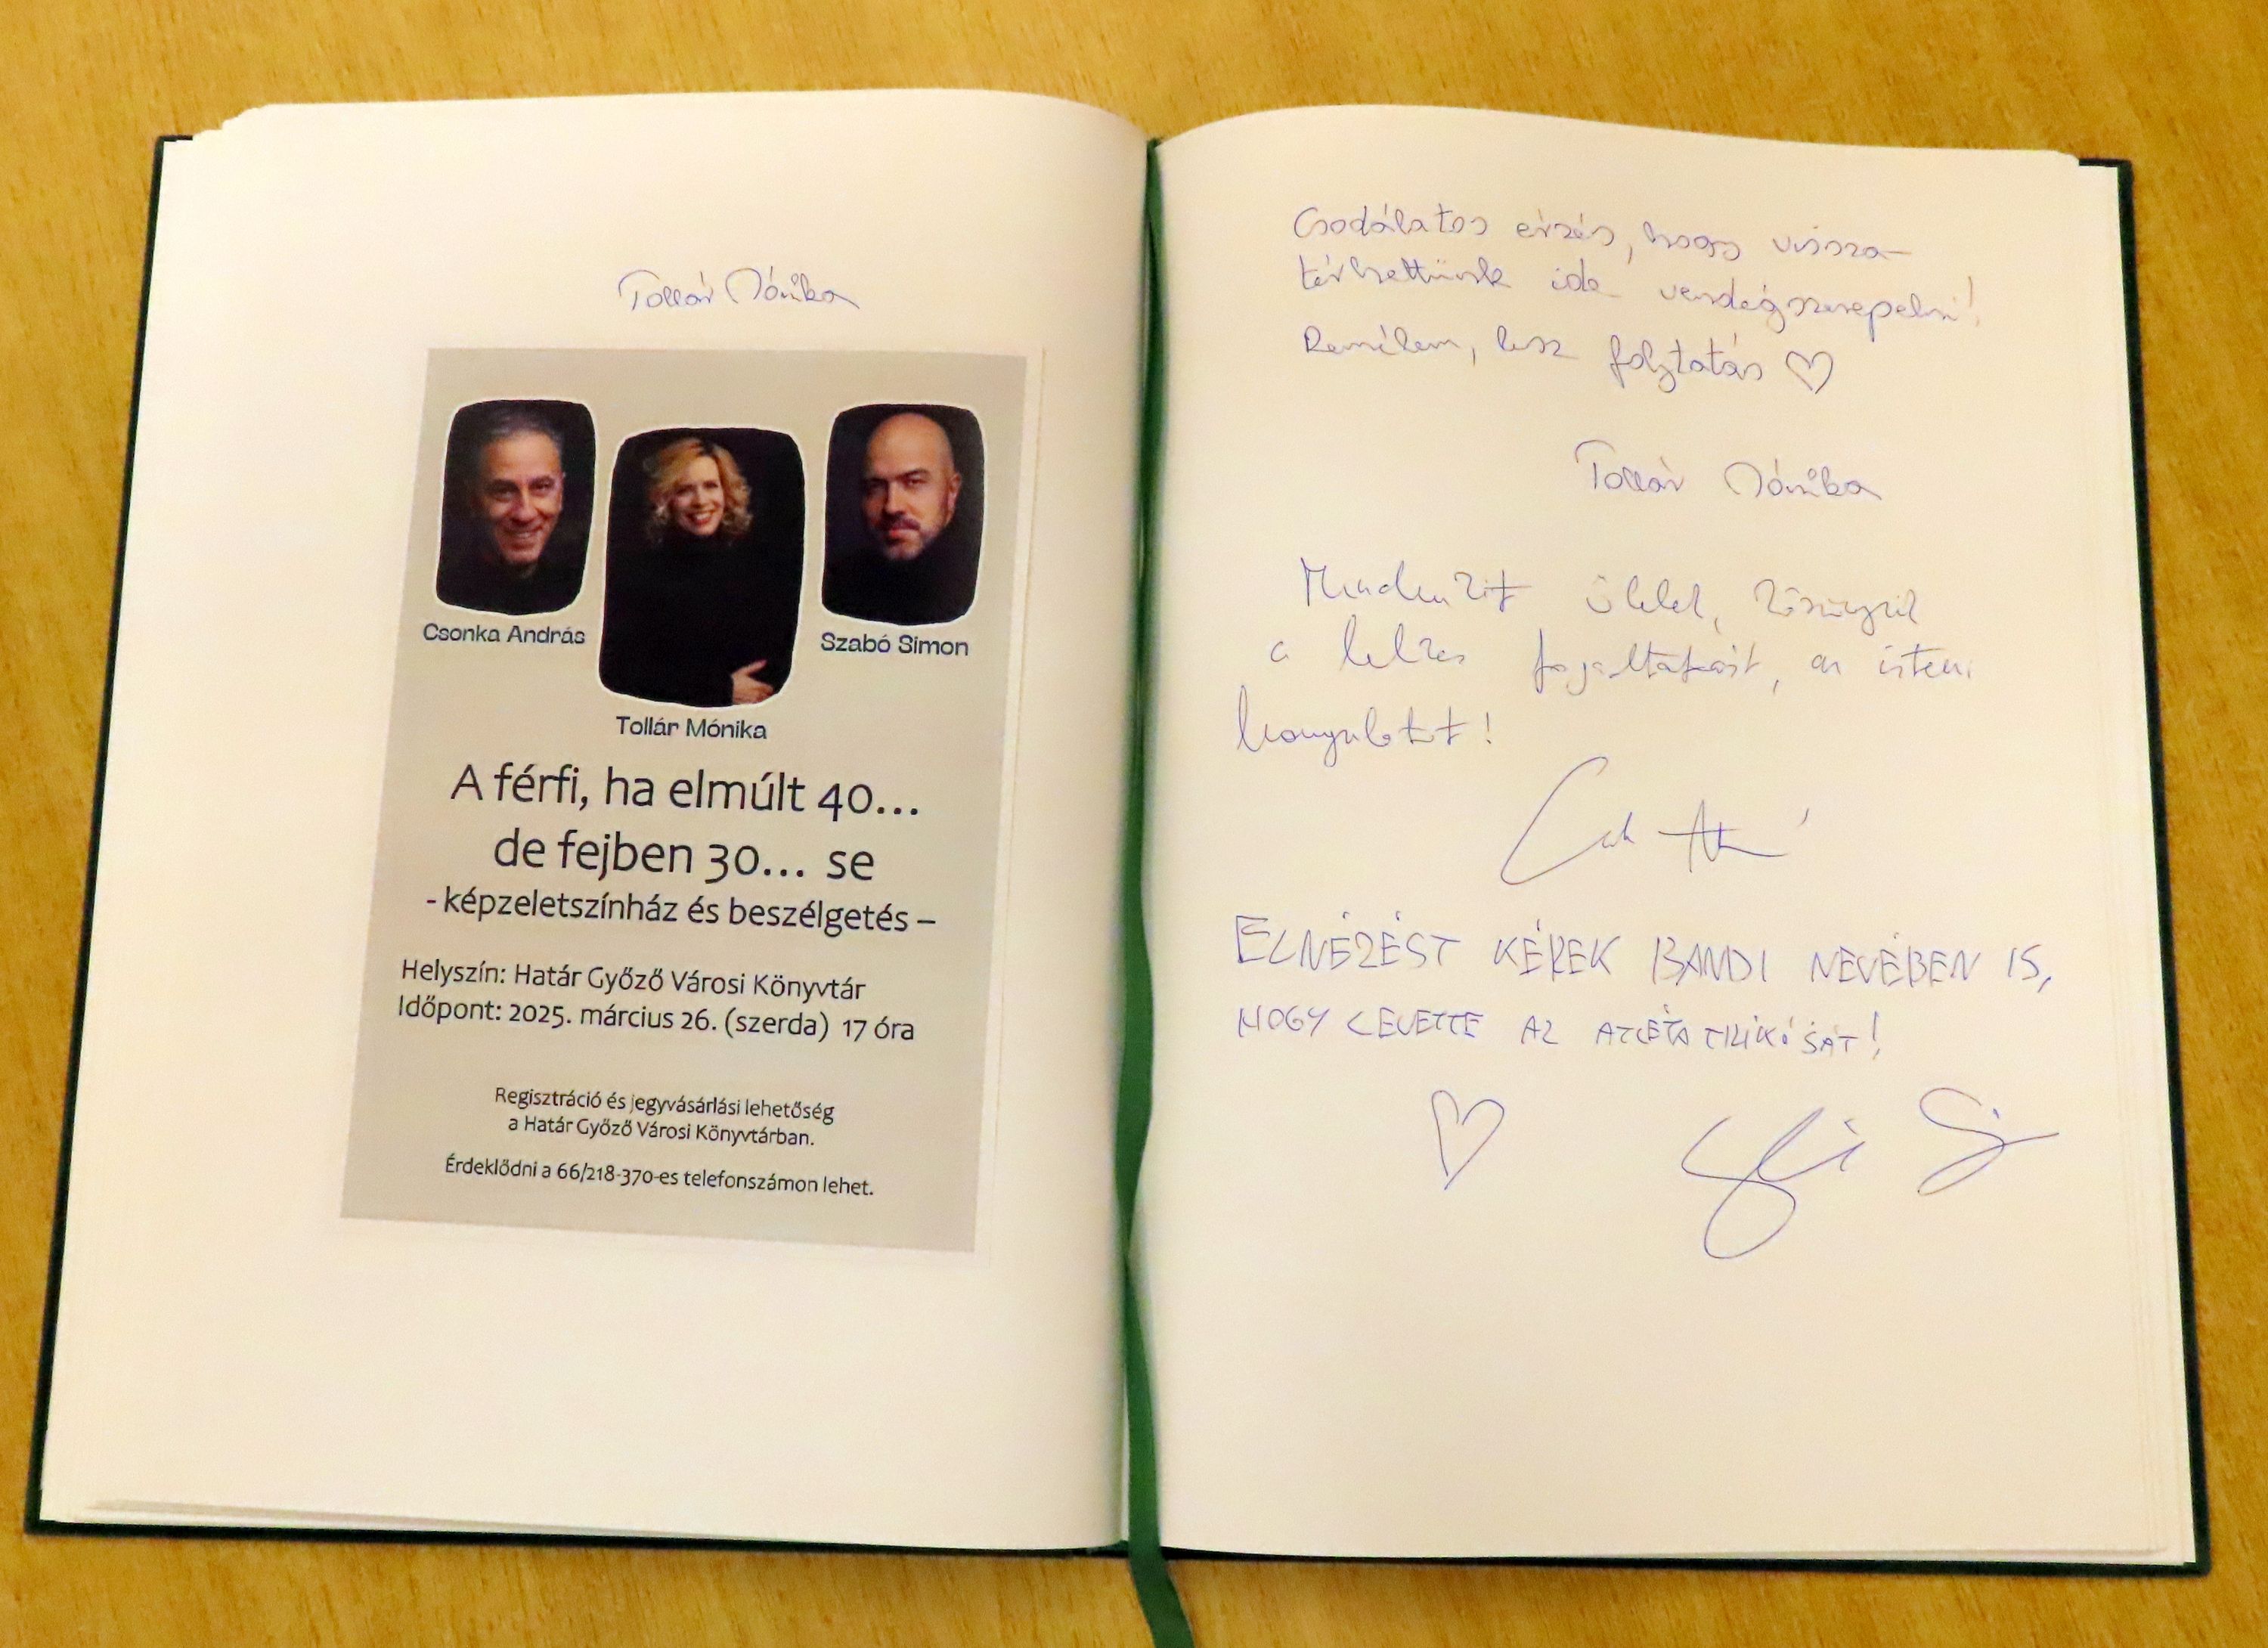 Tollár Mónika
Csonka András
Szabó Simon
Tollár Mónika
A férfi, ha elmúlt 40...
de fejben 30... se
- képzeletszínház és beszélgetés –
Helyszín: Határ Győző Városi Könyvtár
Időpont: 2025. március 26. (szerda) 17 óra
Regisztráció és jegyvásárlási lehetőség
a Határ Győző Városi Könyvtárban.
Érdeklődni a 66/218-370-es telefonszámon lehet.
Csodálatos érzés, hogy vissza-
térhettünk ide vendégszerepelni!
Remélem, lesz folytatás ♡
Tollár Mónika
Mindenkit ölelek, köszönjük
a lelkes fogadtatást, az isteni
hangulatot!
ELNÉZÉST KÉREK BANDI NEVÉBEN IS,
HOGY LEVETTE AZ ATLÉTATRIKÓJÁT!